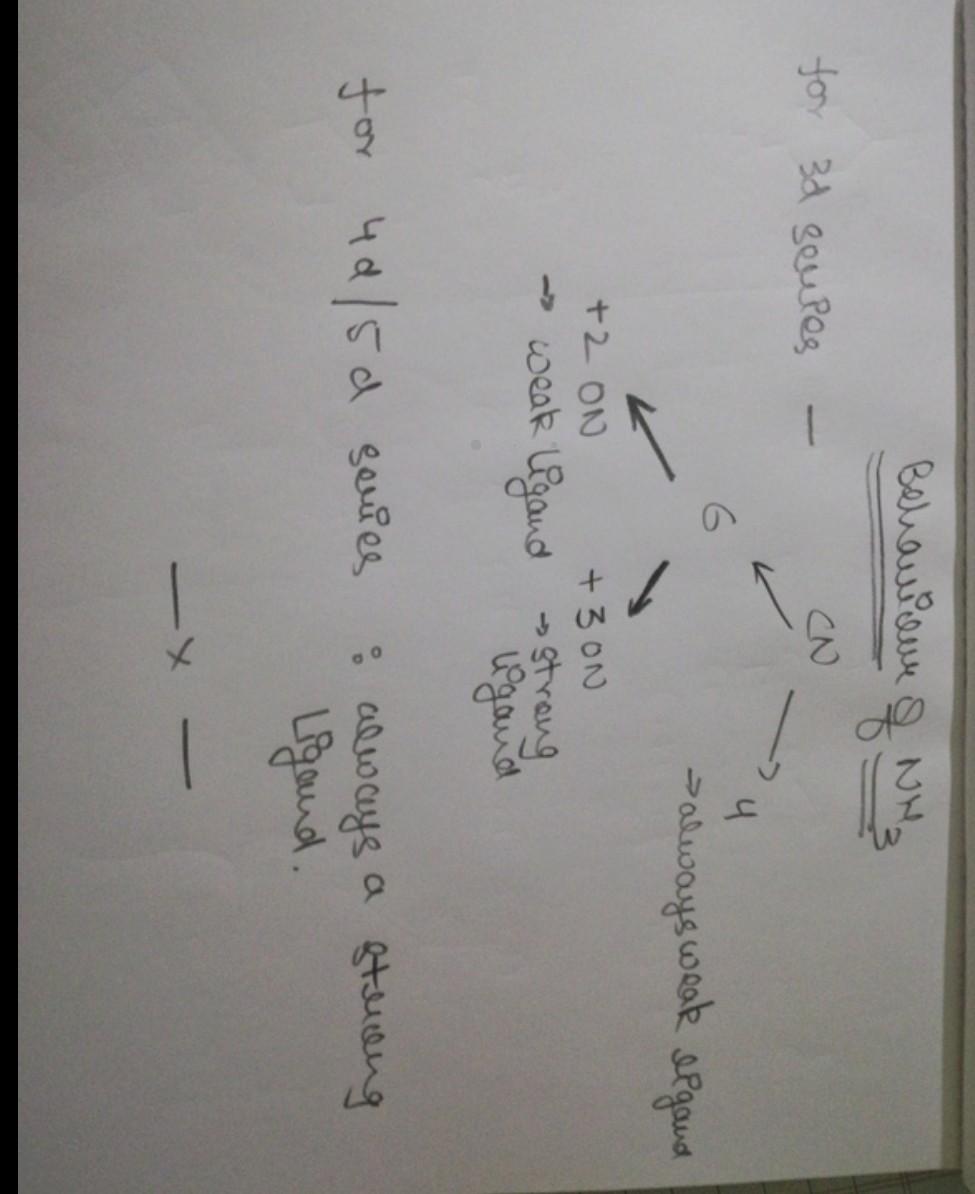 Behaviour of NH3
for 3d series —
CN
6
4
→ always weak ligand
+2 ON
+3 ON
→ weak ligand
→ strong
ligand
for 4d/5d series : always a strong
Ligand.
— x —